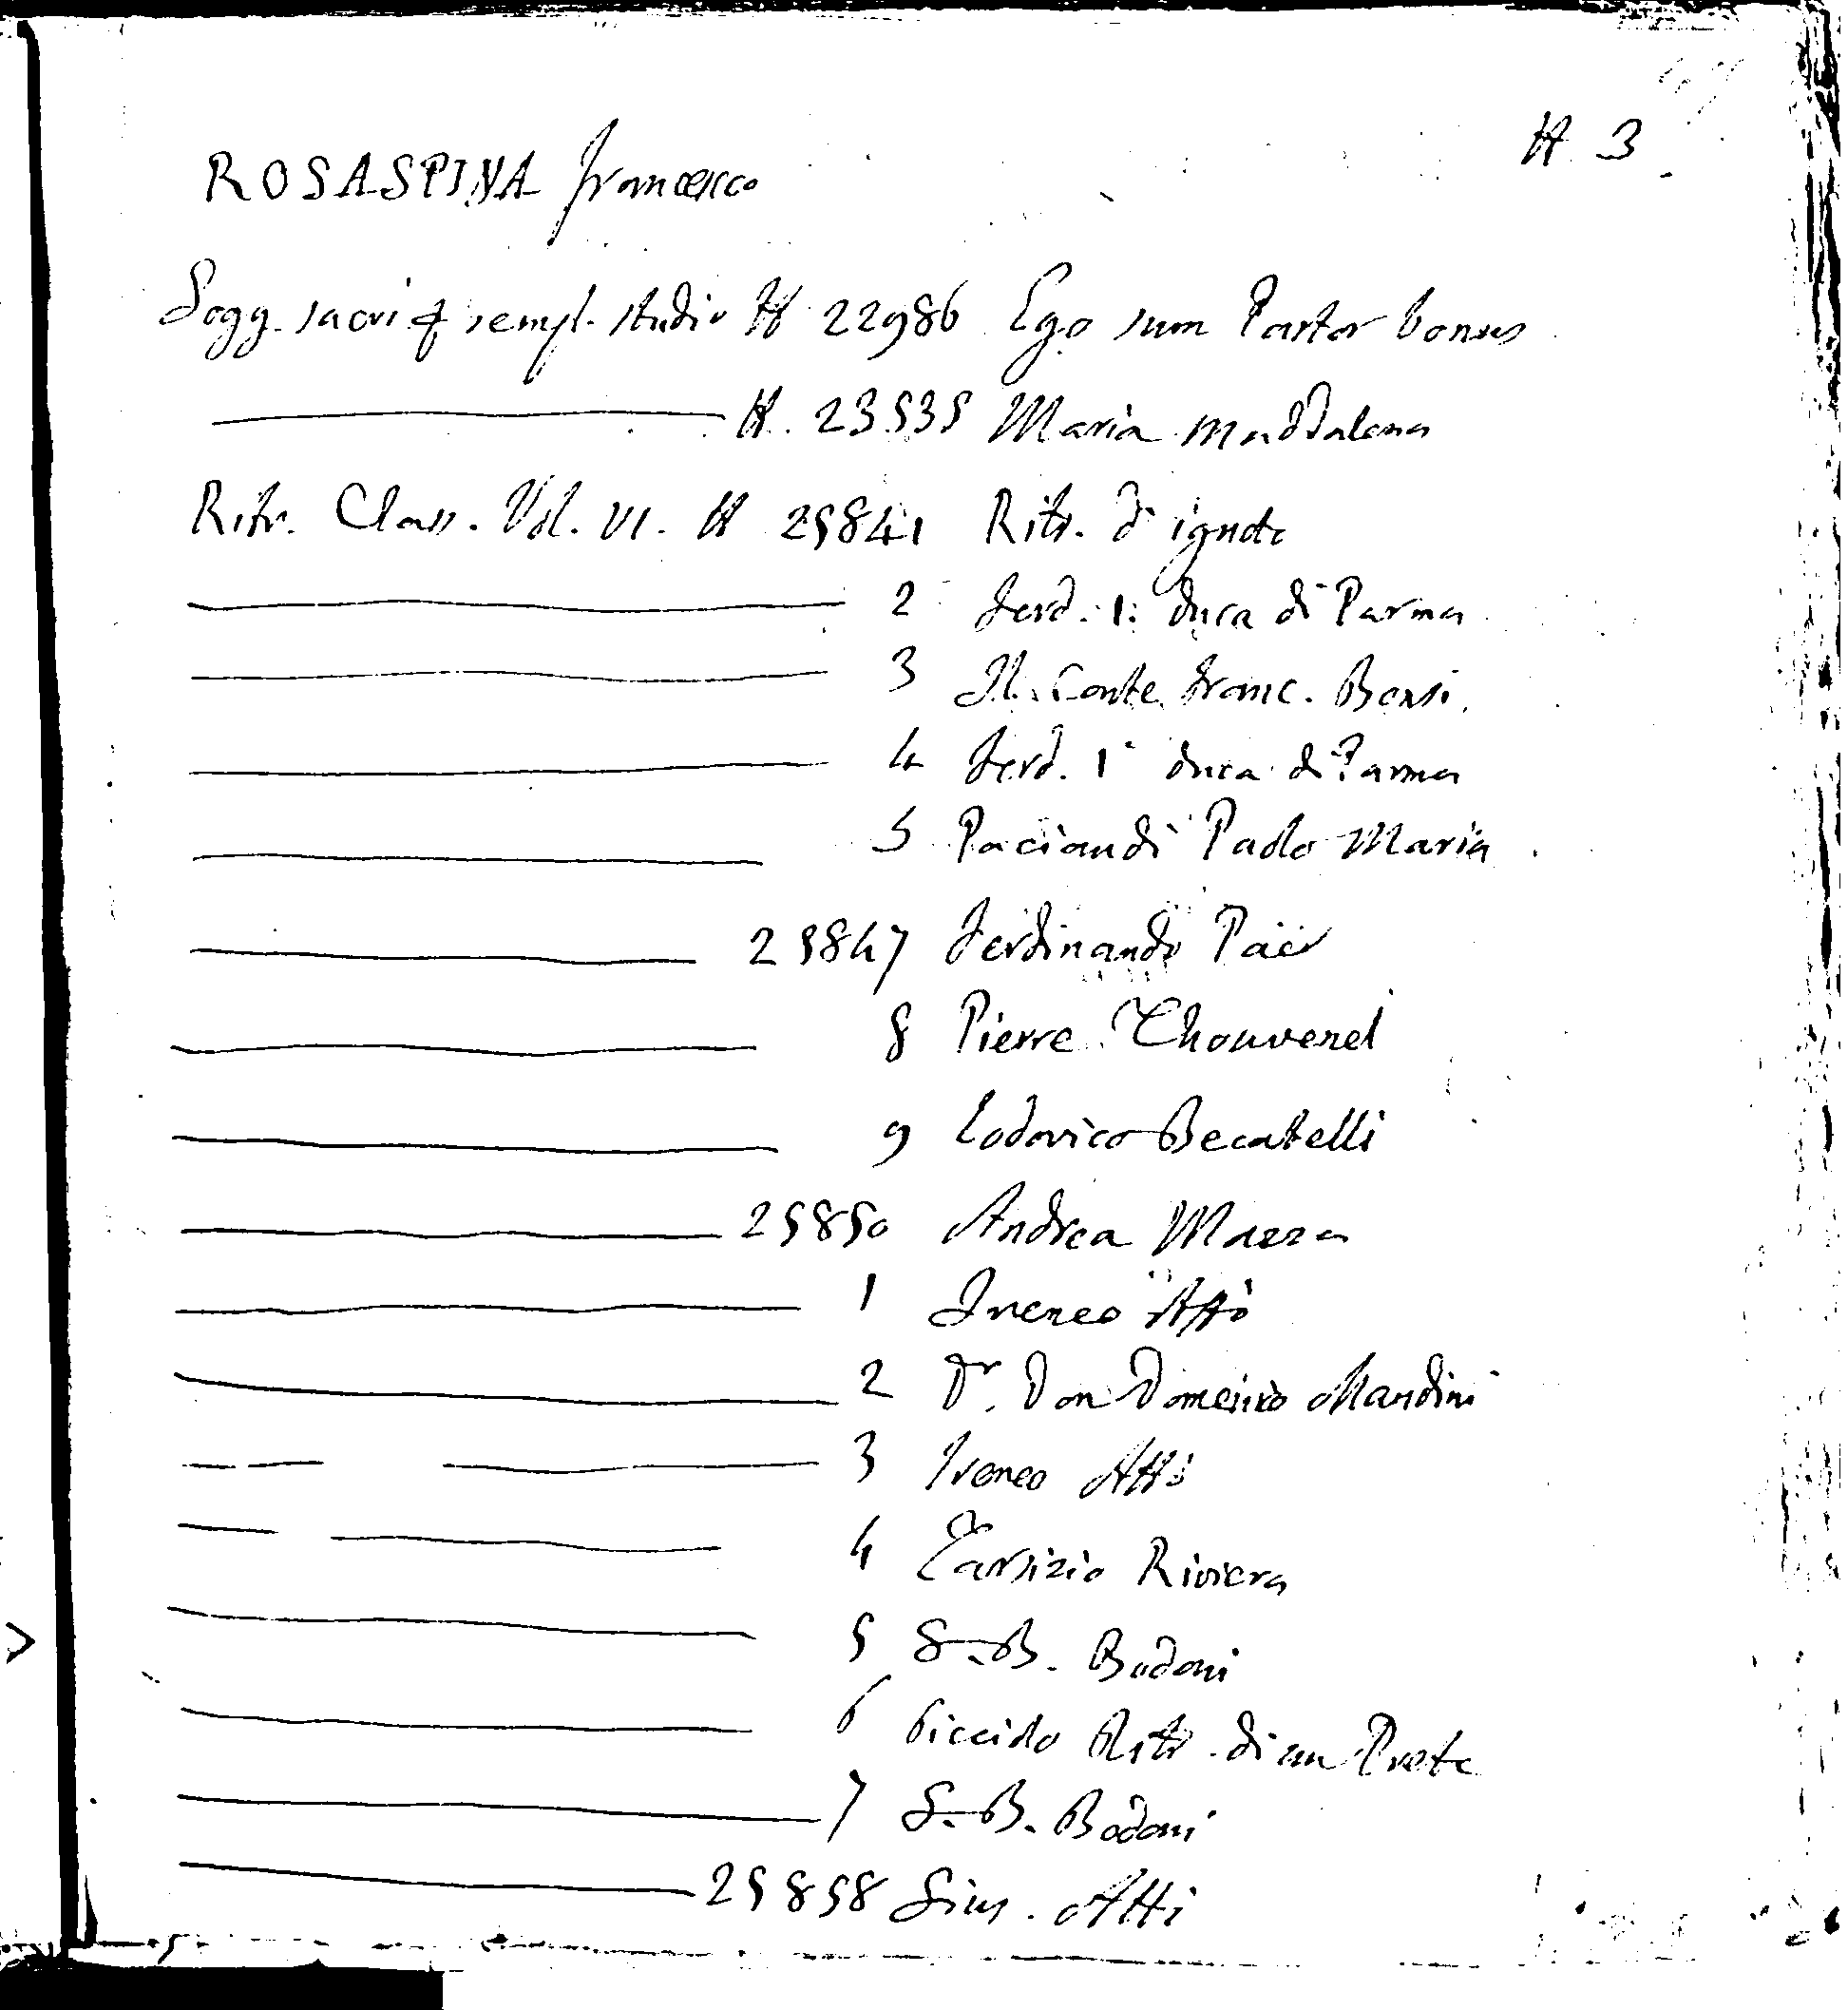 N 3
ROSASPINA Francesco
Sogg. sacri q sempl. studio N 22986 Ego sum Pastor bonus
N. 23535 Maria Maddalena
Ritr. Class. Vol. VI. N 25841 Ritr. d'ignoto
2 Ferd. 1. duca di Parma
3 Il Conte Franc. Bensi.
4 Ferd. 1° duca di Parma
5 Paciaudi Paolo Maria
25847 Ferdinando Päer
8 Pierre Thouvenel
9 Lodovico Becatelli
25850 Andrea Mazza
1 Ireneo Affò
2 Dr. Don Domenico Mandini
3 Ireneo Affò
4 Tarsizio Riviera
5 G. B. Bodoni
6 Piccolo Ritr. di un Prete
7 G. B. Bodoni
25858 Gius. Atti